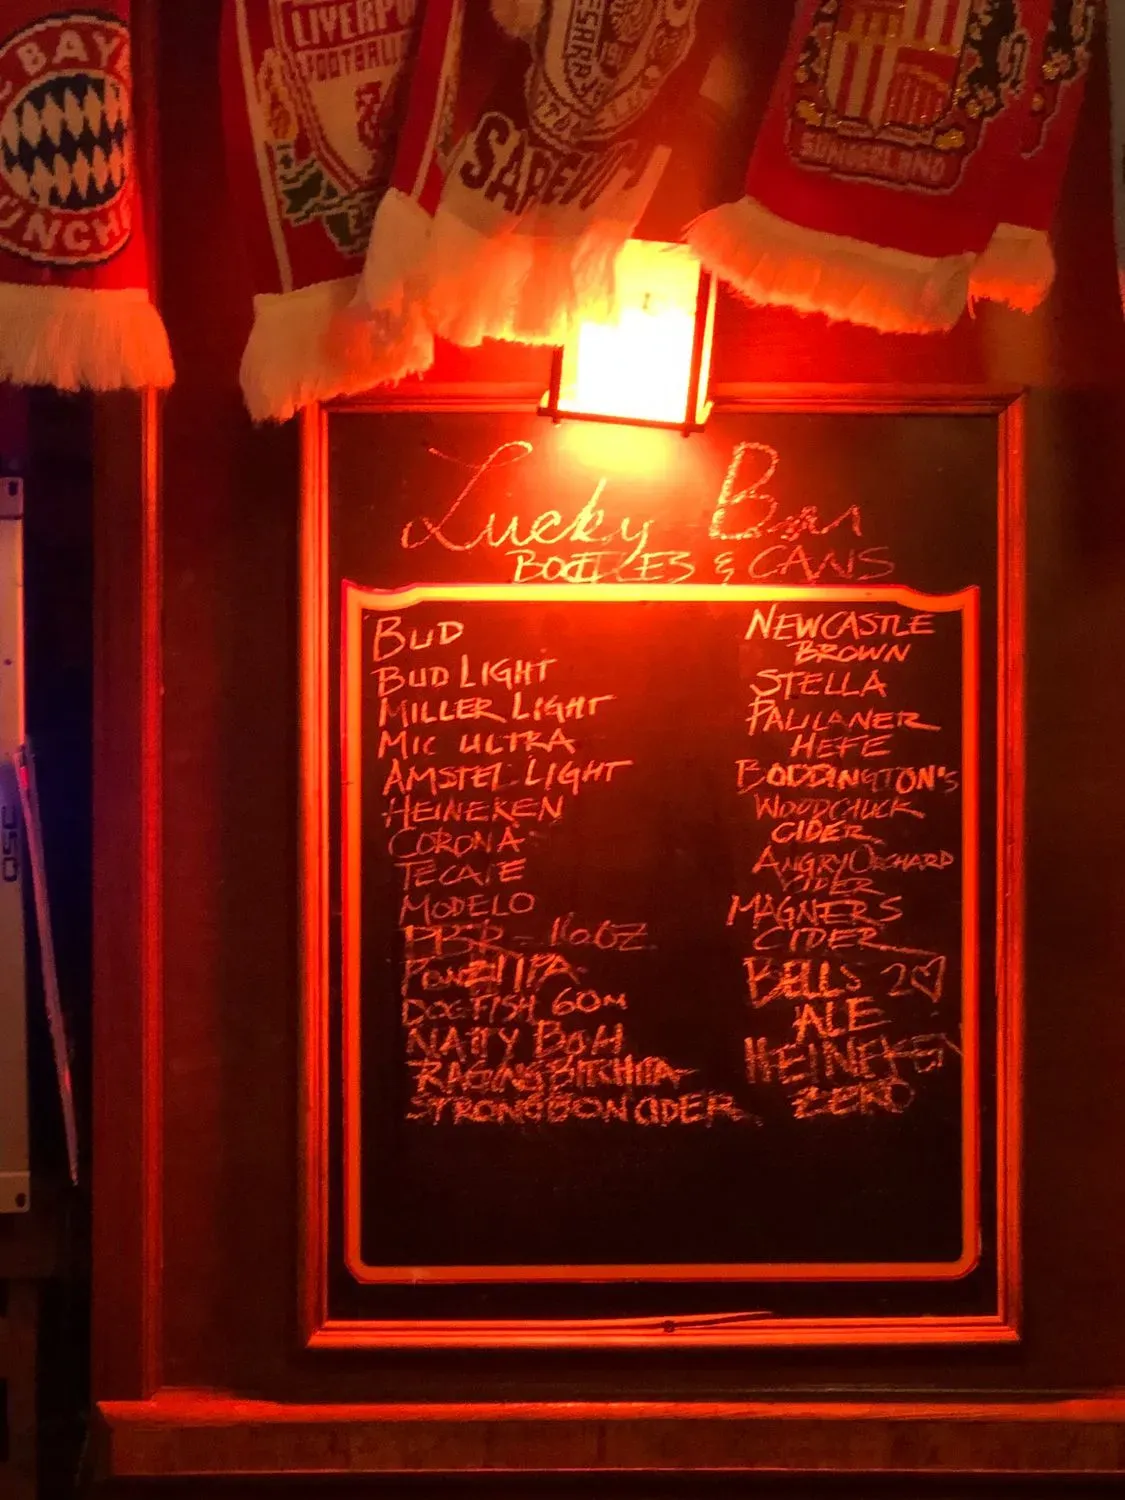 BAY
UNCH
LIVERPO
FOOTBALL
SARAJEVO
SUNDERLAND
Lucky Bar
BOTTLES & CANS
BUD
BUD LIGHT
MILLER LIGHT
MIC ULTRA
AMSTEL LIGHT
HEINEKEN
CORONA
TECATE
MODELO
PBR - 16OZ
POWER IPA
DOGFISH 60M
NATTY BOH
RAGING BITCH IPA
STRONGBOW CIDER
NEWCASTLE
BROWN
STELLA
PAULANER
HEFE
BODDINGTON'S
WOODCHUCK
CIDER
ANGRY ORCHARD
CIDER
MAGNERS
CIDER
BELLS 2♡
ALE
HEINEKEN
ZERO
OSC